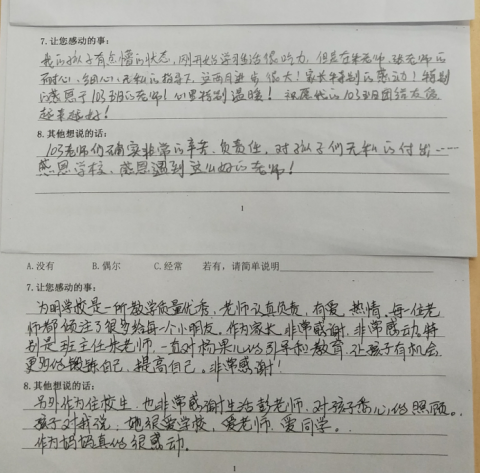 7.让您感动的事:
我的孩子有点懵的状态,刚开始学习生活很吃力,但是在朱老师、张老师的
耐心、细心、无私的指导下,这两月进步很大!家长特别的感动!特别
的感恩于103班的老师!心里特别温暖!祝愿我们103班团结友爱
越来越好!
8.其他想说的话:
103老师们确实非常的辛苦、负责任,对孩子们无私的付出……
感恩学校,感恩遇到这么好的老师!
1
A.没有 B.偶尔 C.经常 若有,请简单说明
7.让您感动的事:
为明学校是一所教学质量优秀,老师认真负责,有爱,热情,每一位老
师都倾注了很多给每一个小朋友。作为家长,非常感谢,非常感动,特
别是班主任朱老师,一直对杨果儿的引导和教育,让孩子有机会
更多的锻炼自己,提高自己。非常感谢!
8.其他想说的话:
另外作为住校生,也非常感谢生活彭老师,对孩子悉心的照顾。
孩子对我说,她很爱学校,爱老师,爱同学。
作为妈妈真的很感动。
1